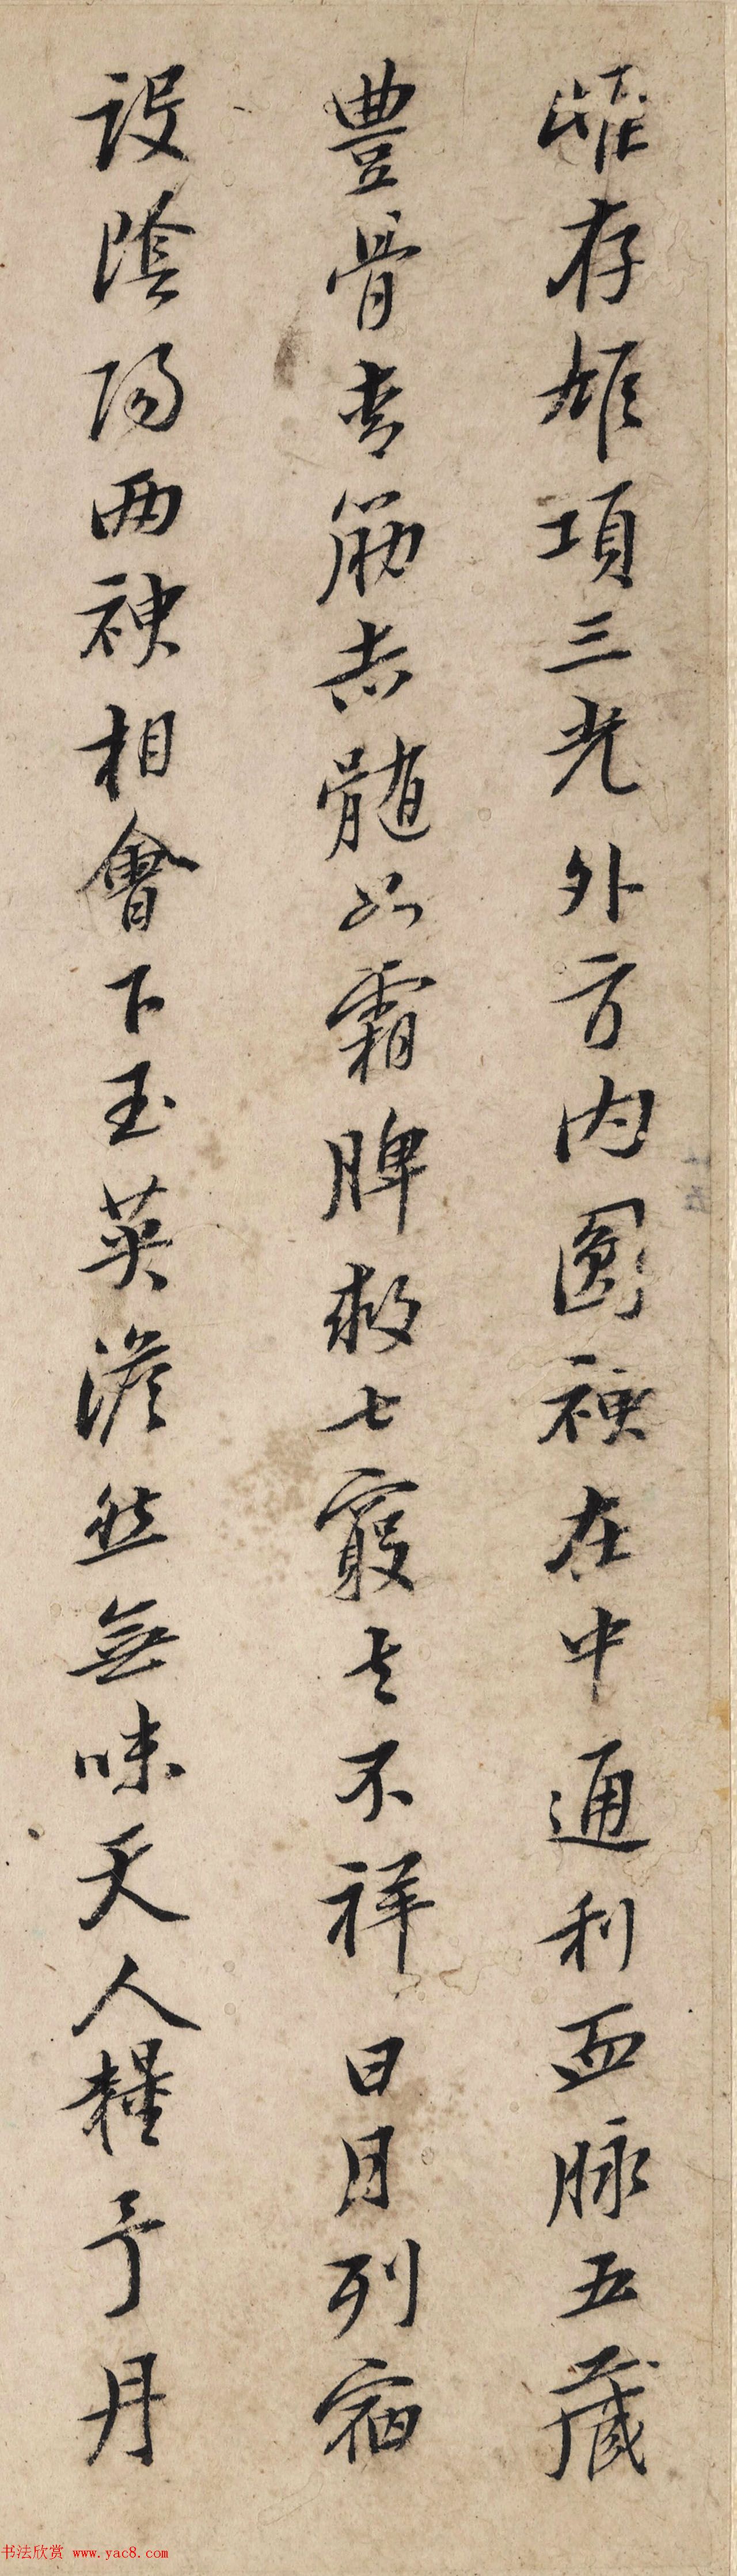 雌存雄項三光外方内圓神在中通利血脉五藏
豊骨青筋赤髄如霜脾救七竅去不祥日月列宿
設陰陽两神相會下玉英澹然無味天人糧子丹
书法欣赏 www.yac8.com